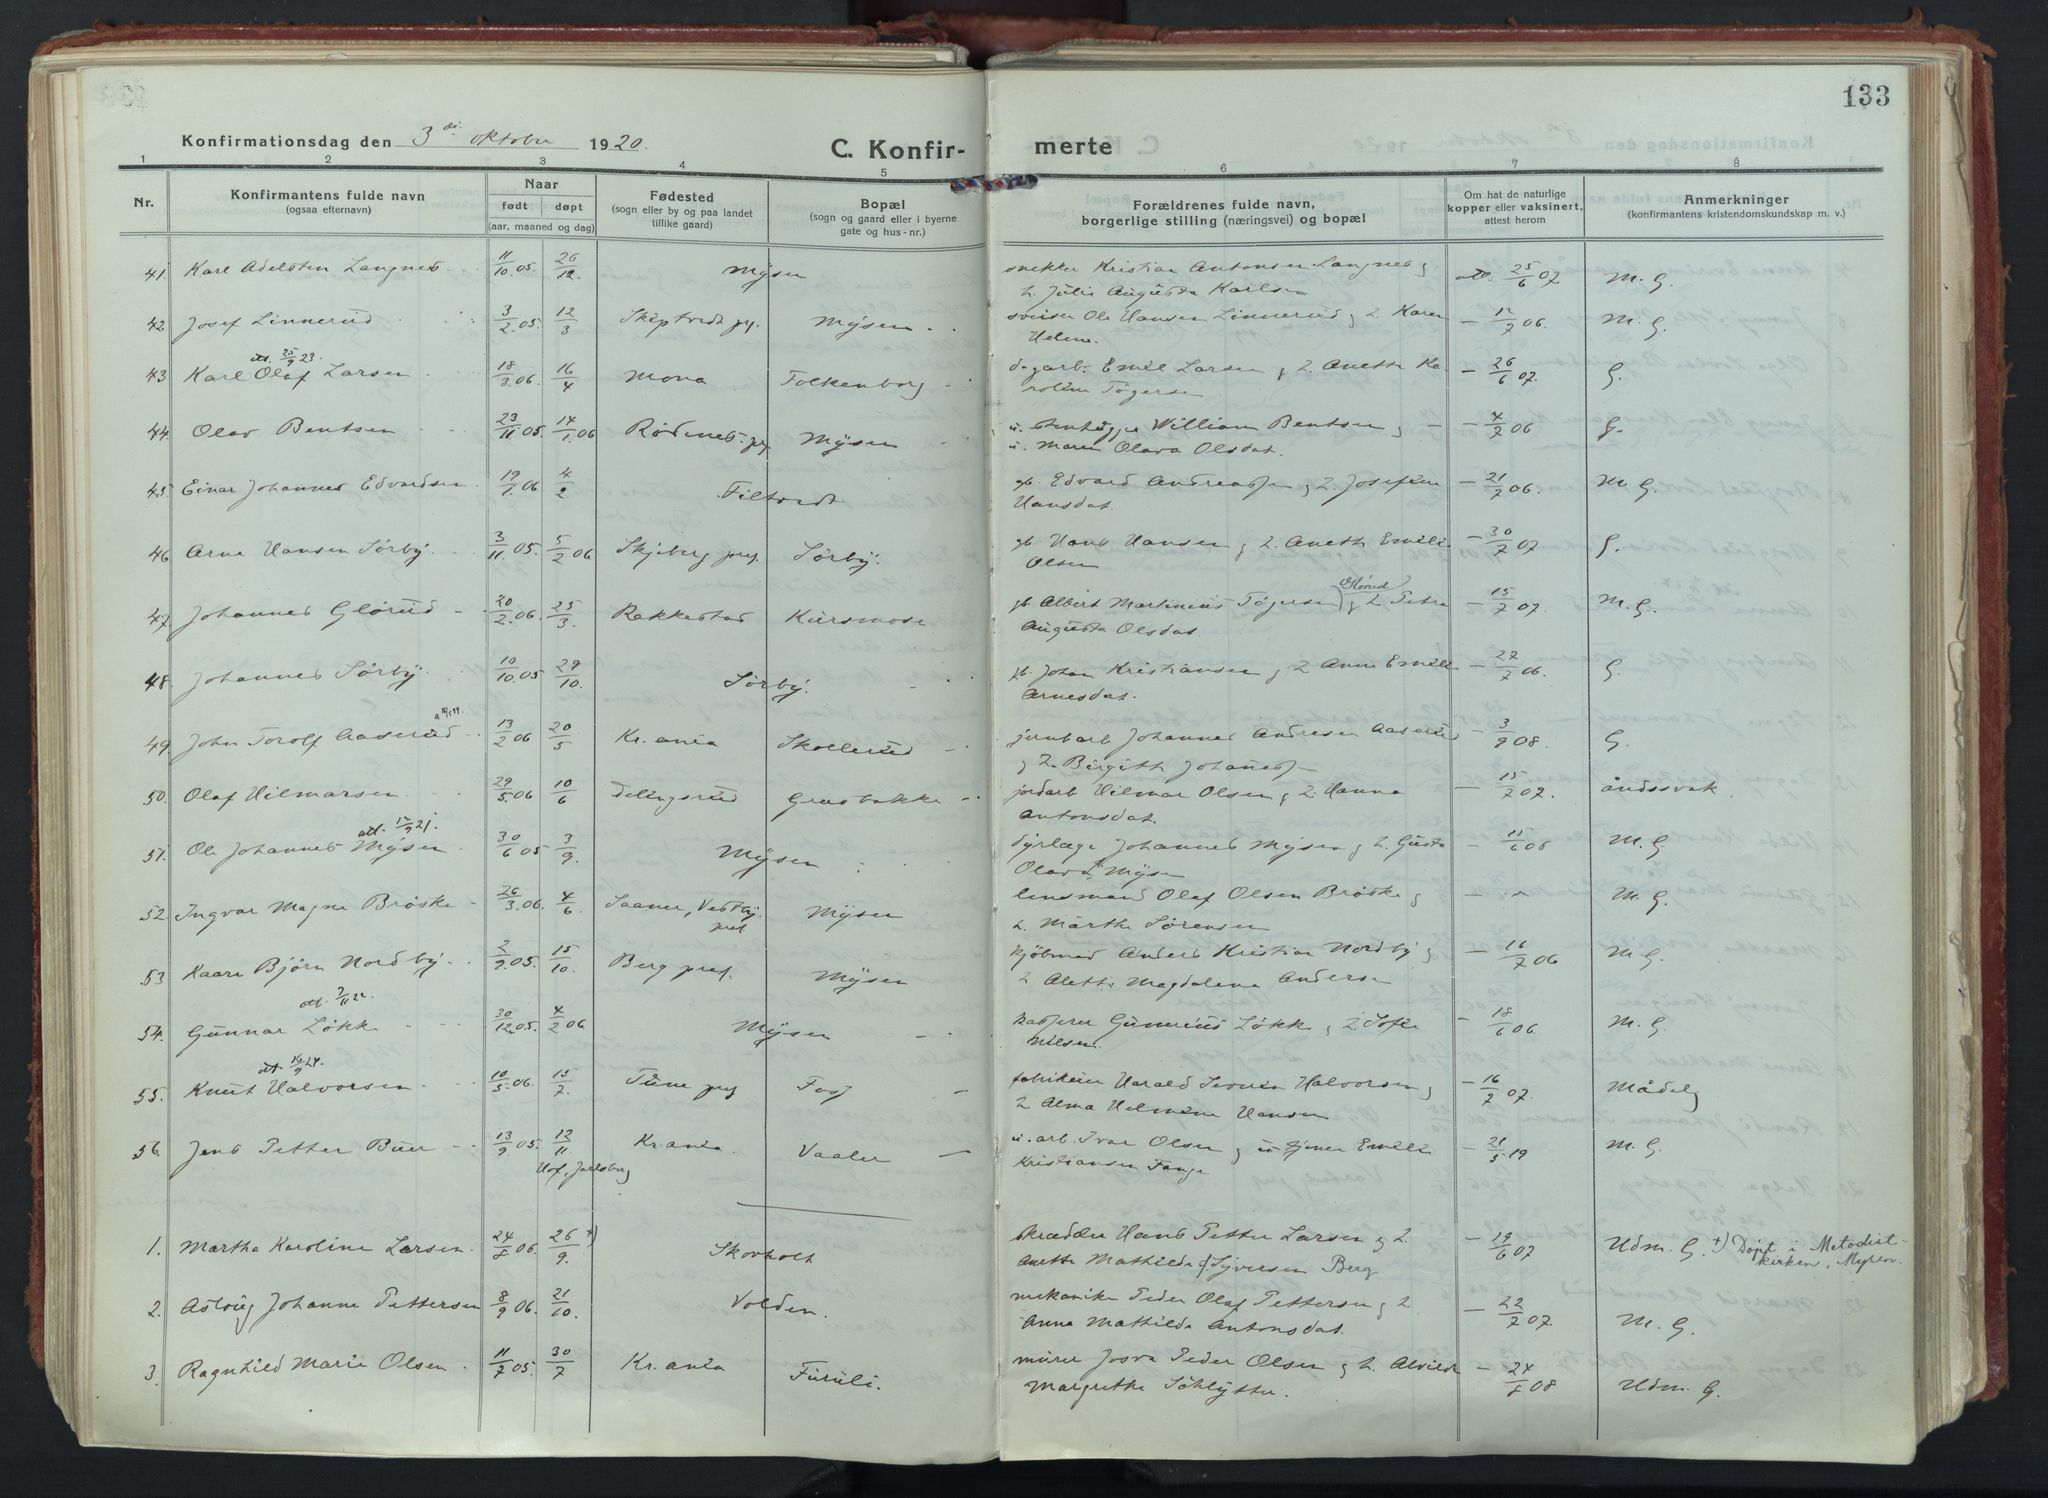 133
Konfirmationsdag den 3 oktober 1920.
C. Konfirmerte
1 2 3 4 5 6 7 8
Nr.
Konfirmantens fulde navn
(ogsaa efternavn)
Naar
født døpt
(aar, maaned og dag)
Fødested
(sogn eller by og paa landet
tillike gaard)
Bopæl
(sogn og gaard eller i byerne
gate og hus-nr.)
Forældrenes fulde navn,
borgerlige stilling (næringsvei) og bopæl
Om hat de naturlige
kopper eller vaksinert,
attest herom
Anmerkninger
(konfirmantens kristendomskundskap m. v.)
41. Karl Adelsten Langnes 11/10.05. 26/12. Mysen snekker Kristian Antonsen Langnes og att. 25/6 07 M. G.
h. Julie Augusta Karlsen
42. Josef Linnerud 3/2.05. 12/3 Skiptvedt pg. Mysen sveiser Ole Hansen Linnerud og h. Karen – 12/7 06. M. G.
Helene.
att. 25/9 23.
43 Karl Olaf Larsen 18/3.06. 16/4 Mona Folkenborg dagarb. Emil Larsen og h. Anette Ka- – 26/6 07. G.
roline Tøgersen
44. Olav Bentsen 23/11.05. 14/1.06 Rødenes pg. Mysen u. William Bentsen og – 4/7 06 G.
u. Maren Olava Olsdat.
45. Einar Johannes Edvardsen 19/1.06 4/2 Filtvedt gb. Edvard Andreassen og h. Josefine – 21/7 06. M G.
Hansdat.
46 Arne Hansen Sørby 3/11.05. 5/2 06 Skjeberg prest. Sørby. gb. Hans Hansen og h. Anette Emilie – 30/7 07 G.
Olsen
47. Johannes Glørud 20/2.06. 25/3. Rakkestad Kursmose gb. Albert Martinius Tøgersen Glørud og h. Petra – 15/7 07. M. G.
Augusta Olsdat.
48. Johannes Sørby. 10/10.05 29/10. Sørby. gb. Johan Kristiansen og h. Anne Emilie – 27/7 06. G.
Arnesdat.
49. John Torolf Aaserud 13/2 06 20/5 Kr.ania Skollerud jernbarb Johannes Andresen Aaserud – 3/9 08. G.
og h. Birgitte Johaness
50. Olaf Hilmarsen 29/5.06 10/6 Delingsrud Græsbakke jordarb Hilmar Olsen og h. Hanna – 15/7 07. åndssvak.
Antonsdat.
att. 12/9 21.
51. Ole Johannes Mysen 30/6 05 3/9. Mysen dyrlæge Johannes Mysen og h. Gusta – 11/6 08 M. G
Olava Mysen
52. Ingvar Magne Brøske 26/3.06. 4/6 Saaner, Vestby prest Mysen lensmand Olaf Olsen Brøske og – " M. G.
h. Marthe Sørensen
53 Kaare Bjørn Nordby 2/9.05. 15/10. Berg prest. Mysen kjøbmand Anders Kristian Nordby og – 16/7 06 M. G.
h Alette Magdalena Andersen
att. 7/11 22.
54. Gunnar Løkke 30/12.05. 4/2 06 Mysen kasserer Gunerius Løkke og h. Sofie – 18/6 06. M. G.
Nilsen.
att 16/9 24.
55. Knut Halvorsen 10/5.06 15/7. Tune pg Foss fabrikeier Harald Severin Halvorsen og – 16/7 07. Mådelg
h. Alma Helmine Hansen
56. Jens Petter Buer 13/9.05. 12/11 Kr.ania. Vaaler u. arb. Ivar Olsen og u tjener Emilie – 21/5.19 M. G.
Hof, Jarlsberg Kristiansen Fange
1. Martha Karoline Larsen. 24/8 06. 26/9. +) Skovholt skrædder Hans Petter Larsen og h. – 19/6 07 Udm. G. +) Døpt i Metodist-
Anette Mathilde f. Syversen Berg kirken, Mysen.
2. Aslaug Johanne Pettersen 8/9 06. 21/10. Volden. mekaniker Peder Olaf Pettersen og h. – 22/7 07. M. G.
Anna Mathilde Antonsdat.
3. Ragnhild Marie Olsen 11/7 05. 30/7 Kr.ania Furuli. murer Josva Peder Olsen og h. Alvilde – 24/8 08 Udm. G.
Margrethe Schlytter.